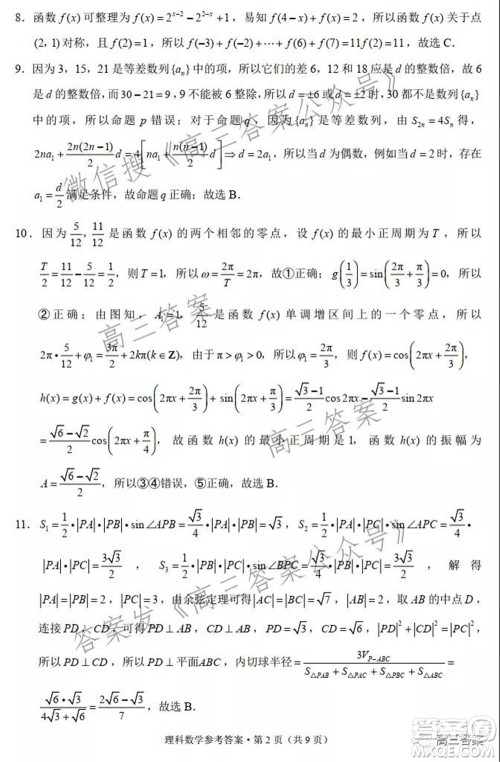 8．函数 f(x) 可整理为 f(x)=2^{x-2}-2^{2-x}+1，易知 f(4-x)+f(x)=2，所以函数 f(x) 关于点
(2, 1) 对称，且 f(2)=1，所以 f(-3)+f(-2)+⋯+f(6)+f(7)=11f(2)=11，故选 C．
9．因为 3，15，21 是等差数列{a_n}中的项，所以它们的差 6，12 和 18 应是 d 的整数倍，故 6
是 d 的整数倍，而 30-21=9，9 不能被 6 整除，所以 d=±6 或 d=±2 时，30 都不是数列{a_n}
中的项，所以命题 p 错误；对于命题 q，因为{a_n}是等差数列，由 S_{2n}=4S_n 得，
2na_1+\frac{2n(2n-1)}{2}d=4[na_1+\frac{n(n-1)}{2}d]⇒d=2a_1，所以当 d 为偶数，例如当 d=2 时，存在
a_1=\frac{d}{2}满足条件，故命题 q 正确；故选 B．
10．因为 \frac{5}{12}，\frac{11}{12} 是函数 f(x) 的两个相邻的零点，设 f(x) 的最小正周期为 T，所以
\frac{T}{2}=\frac{11}{12}-\frac{5}{12}=\frac{1}{2}，则 T=1，所以 ω=\frac{2π}{T}=2π，故①正确；g(\frac{1}{3})=sin(\frac{2π}{3}+\frac{π}{3})=0，所以
②正确；由图知，A_1=1，\frac{5}{12} 是函数 f(x) 单调增区间上的一个零点，所以
2π·\frac{5}{12}+φ_1=\frac{3π}{2}+2kπ(k∈Z)，由于 π>φ_1>0，所以 φ_1=\frac{2π}{3}，f(x)=cos(2πx+\frac{2π}{3})，
h(x)=g(x)+f(x)=cos(2πx+\frac{2π}{3})+sin(2πx+\frac{π}{3})=\frac{√3-1}{2}cos2πx-\frac{√3-1}{2}sin2πx
=\frac{√6-√2}{2}cos(2πx+\frac{π}{4})，故函数 h(x) 的最小正周期是 1，函数 h(x) 的振幅为
A=\frac{√6-√2}{2}，所以③④错误，⑤正确，故选 B．
11．S_1=\frac{1}{2}·|PA|·|PB|·sin∠APB=\frac{√3}{4}·|PA|·|PB|=√3，S_2=\frac{1}{2}·|PA|·|PC|·sin∠APC=\frac{√3}{4}·
|PA|·|PC|=\frac{3√3}{2}，S_3=\frac{1}{2}·|PB|·|PC|·sin∠BPC=\frac{3√3}{2}，解得
|PA|=|PB|=2，|PC|=3，由余弦定理可得|AC|=|BC|=√7，|AB|=2，取 AB 的中点 D，
连接 PD，CD，可得 PD⊥AB，CD⊥AB，|PD|=√3，|CD|=√6，|PD|^2+|CD|^2=|PC|^2，
所以 PD⊥CD，所以 PD⊥平面ABC，内切球半径=\frac{3V_{P-ABC}}{S_{△PAB}+S_{△PAC}+S_{△PBC}+S_{△ABC}}=
\frac{√6·√3}{4√3+√6}=\frac{2√6-√3}{7}，故选 B．
理科数学参考答案·第 2 页（共 9 页）
微信搜《高三答案公众号》
高三答案
高三答案
答案发《高三答案公众号》
高三答案